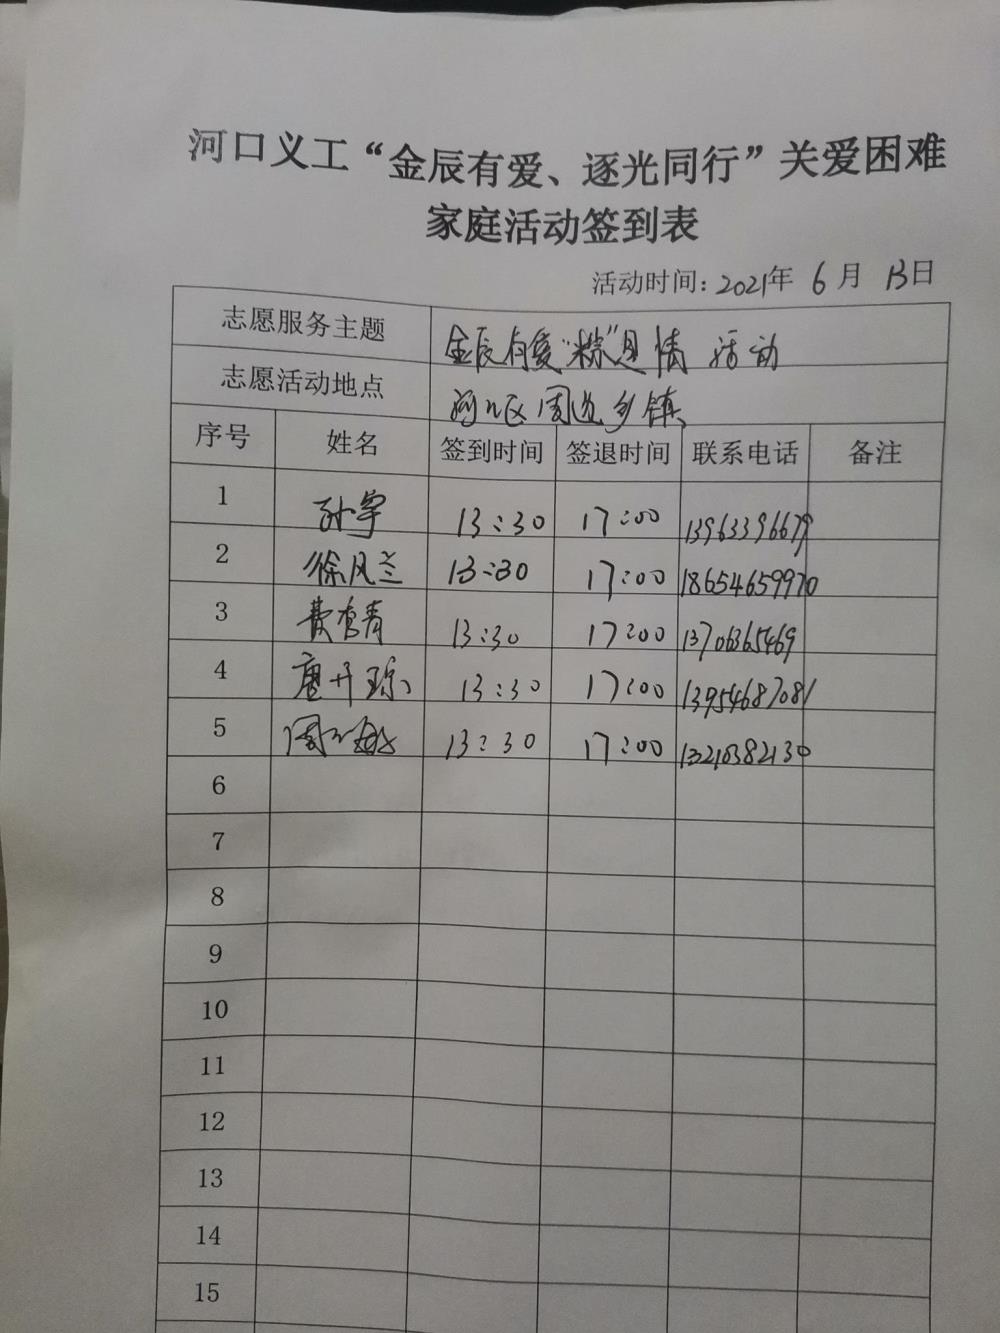 河口义工“金辰有爱、逐光同行”关爱困难
家庭活动签到表
活动时间：2021年 6 月 13日
志愿服务主题 金辰有爱“粽”是情 活动
志愿活动地点 河口区周边乡镇
序号 姓名 签到时间 签退时间 联系电话 备注
1 孙宇 13:30 17:00 13963396679
2 徐风兰 13:30 17:00 18654659970
3 13:30 17:00 13706365469
4 13:30 17:00 13954687081
5 13:30 17:00
6
7
8
9
10
11
12
13
14
15